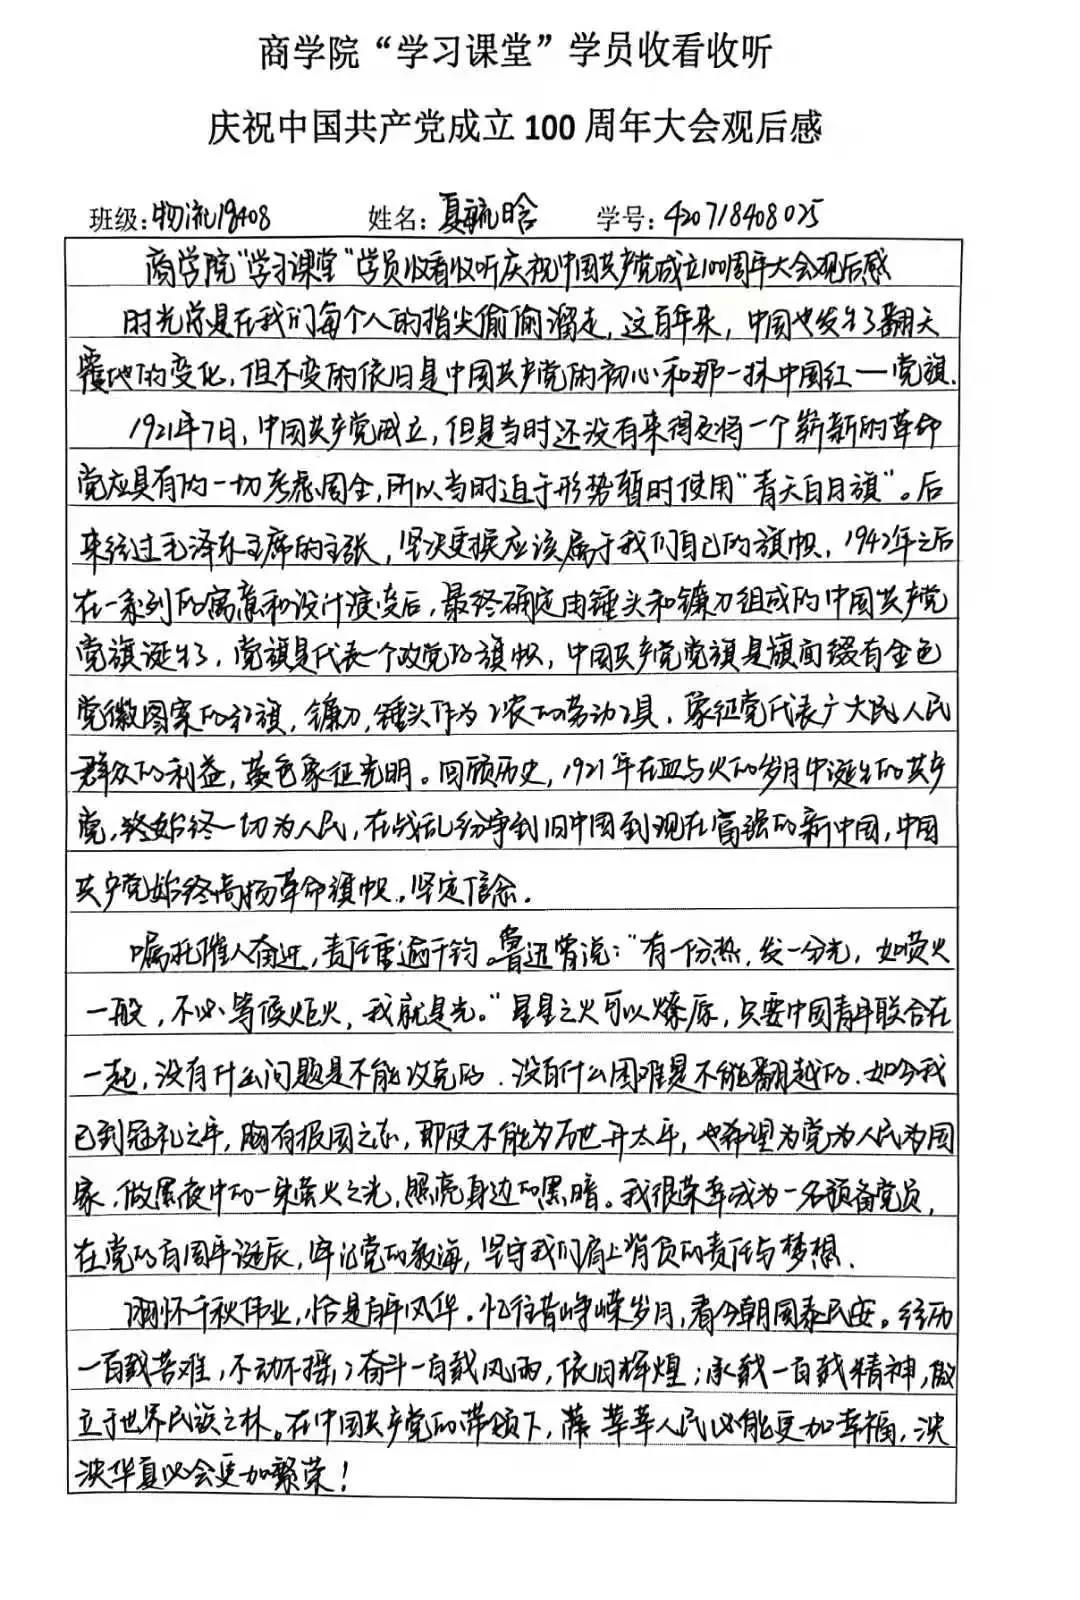 商学院“学习课堂”学员收看收听
庆祝中国共产党成立 100 周年大会观后感
班级:物流19408 姓名:夏毓晗 学号:420718408025
商学院“学习课堂”学员收看收听庆祝中国共产党成立100周年大会观后感
时光总是在我们每个人的指尖偷偷溜走，这百年来，中国也发生了翻天
覆地的变化，但不变的依旧是中国共产党的初心和那一抹中国红一党旗.
1921年7月，中国共产党成立，但是当时还没有来得及将一个崭新的革命
党应具有的一切考虑周全，所以当时迫于形势暂时使用“青天白日旗”。后
来经过毛泽东主席的主张，坚决更换应该属于我们自己的旗帜，1942年之后
在一系列的寓意和设计演变后，最终确定由锤头和镰刀组成的中国共产党
党旗诞生了，党旗是代表一个政党的旗帜，中国共产党党旗是旗面缀有金色
党徽图案的红旗，镰刀，锤头作为工农的劳动工具，象征党代表广大民人民
群众的利益，黄色象征光明。回顾历史，1921年在血与火的岁月中诞生的共产
党，终始终一切为人民，在战乱纷争到旧中国到现在富强的新中国，中国
共产党始终高扬革命旗帜，坚定信念.
嘱托催人奋进，责任重逾千钧。鲁迅曾说：“有一份热，发一分光，如喷火
一般，不必等候炬火，我就是光。”星星之火可以燎原，只要中国青年联合在
一起，没有什么问题是不能攻克的，没有什么困难是不能翻越的.如今我
已到冠礼之年，胸有报国之志，即使不能为万世开太平，也希望为党为人民为国
家，做黑夜中的一束萤火之光，照亮身边的黑暗。我很荣幸成为一名预备党员，
在党的百周年诞辰，牢记党的教诲，坚守我们肩上背负的责任与梦想.
胸怀千秋伟业，恰是百年风华。忆往昔峥嵘岁月，看今朝国泰民安。经历
一百载苦难，不动不摇；奋斗一百载风雨，依旧辉煌；承载一百载精神，傲
立于世界民族之林。在中国共产党的带领下，华华人民必能更加幸福，泱
泱华夏必会更加繁荣！